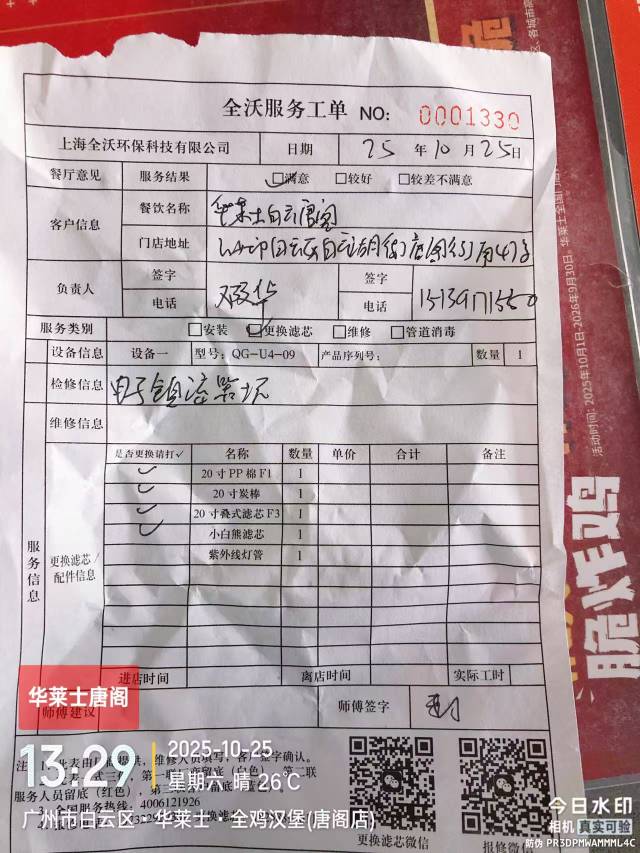 全沃服务工单 NO: 0001330
上海全沃环保科技有限公司 日期 25 年 10 月 25 日
餐厅意见 服务结果 满意 较好 较差不满意
客户信息 餐饮名称 华莱士白云唐阁
门店地址
负责人 签字 签字
电话 电话
服务类别 安装 更换滤芯 维修 管道消毒
设备信息 设备一 型号: QG-U4-09 产品序列号: 数量 1
检修信息 电子镇流器坏
维修信息
服务信息
更换滤芯/配件信息
是否更换请打✓ 名称 数量 单价 合计 备注
✓ 20寸PP棉F1 1
✓ 20寸炭棒 1
✓ 20寸叠式滤芯F3 1
✓ 小白熊滤芯 1
紫外线灯管 1
进店时间 离店时间 实际工时
师傅建议 师傅签字
维修人员填写,客户签字确认。
第二联
服务人员留底(红色),
全国服务热线:4006121926
更换滤芯微信 报修微信
华莱士唐阁
13:29 2025-10-25
星期六 晴 26℃
广州市白云区·华莱士·全鸡汉堡(唐阁店)
今日水印
相机 真实可验
防伪 PR3DPMWAMMML4C
脆炸鸡
活动时间:2025年10月1日-2026年9月30日,华莱士全国门
区、各城市商